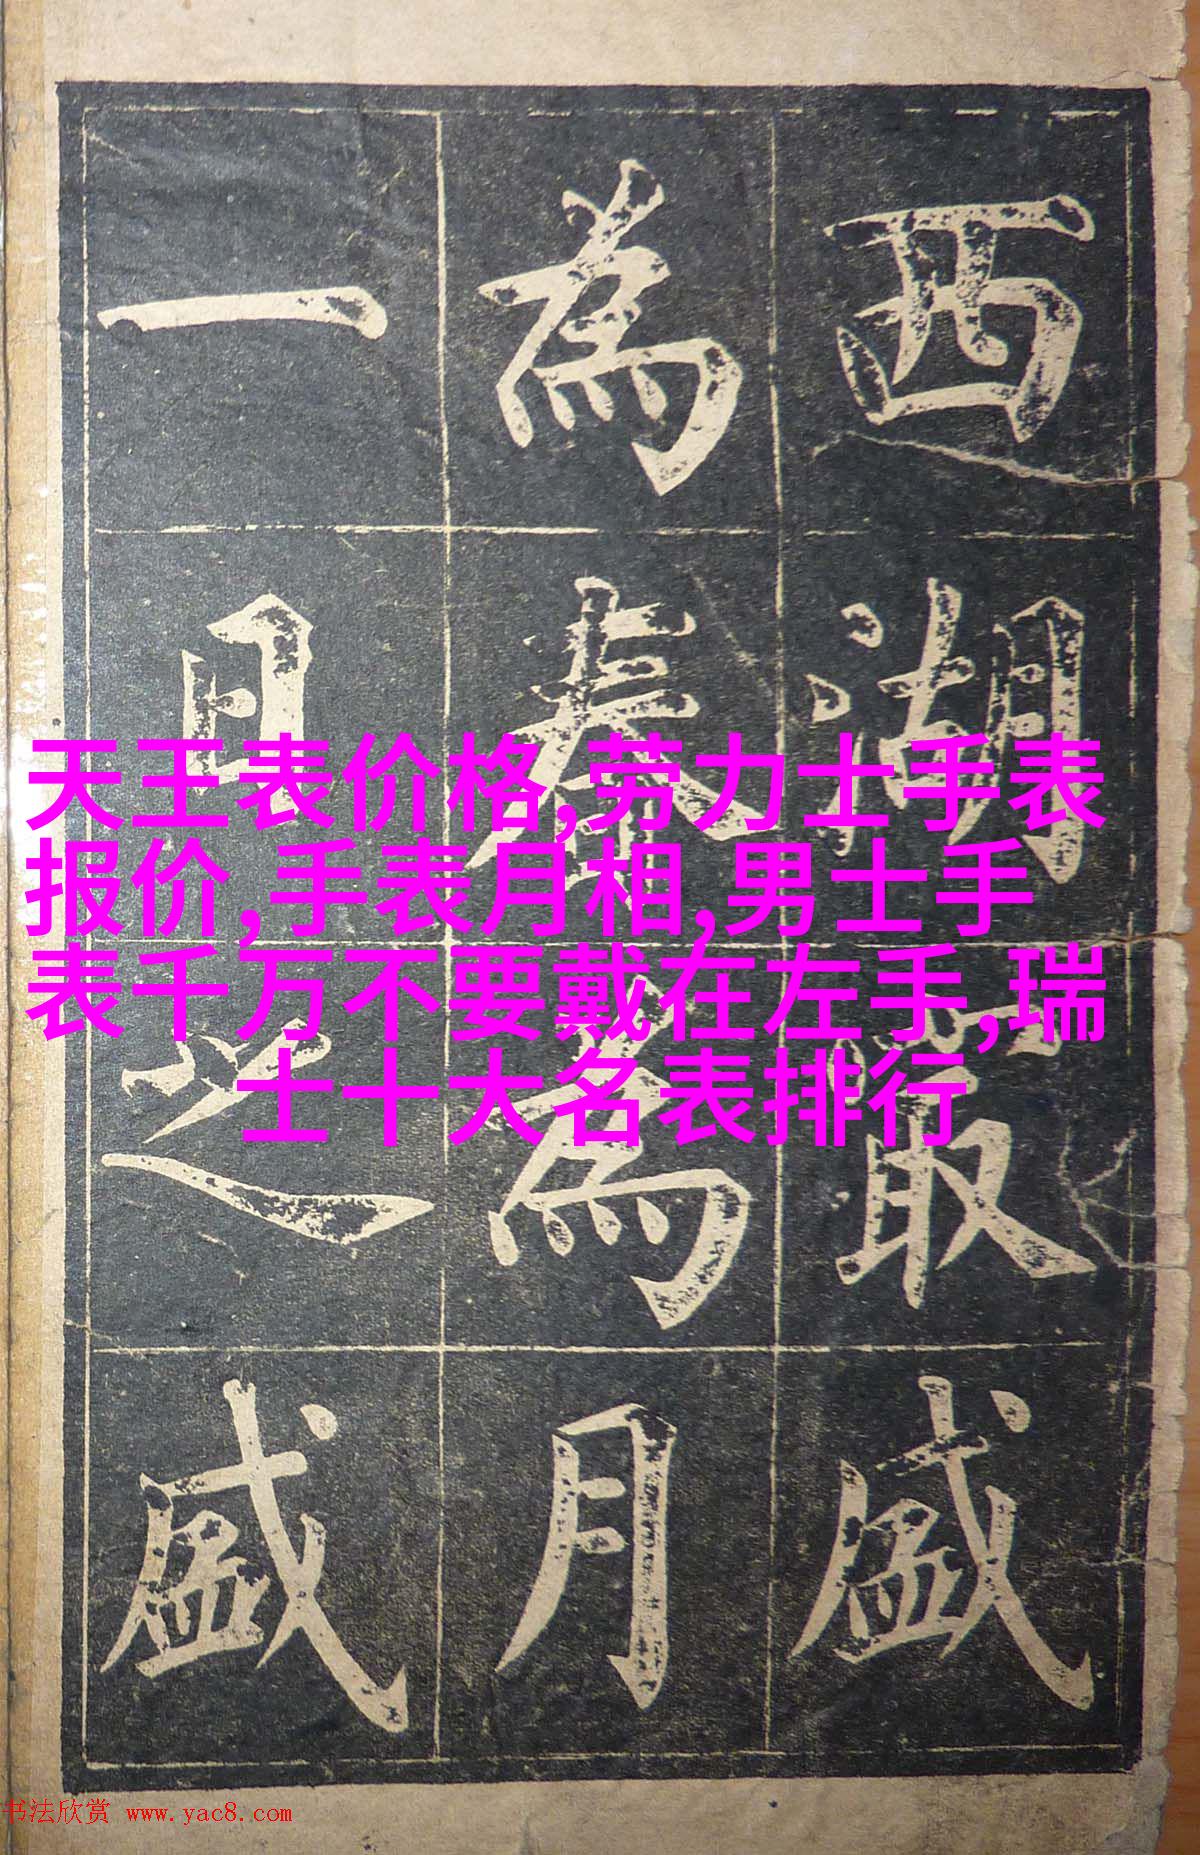 西湖最盛
為春為月
一日之盛
天王表价格,劳力士手表
报价,手表月相,男士手
表千万不要戴在左手,瑞
士十大名表排行
书法欣赏 www.yac8.com